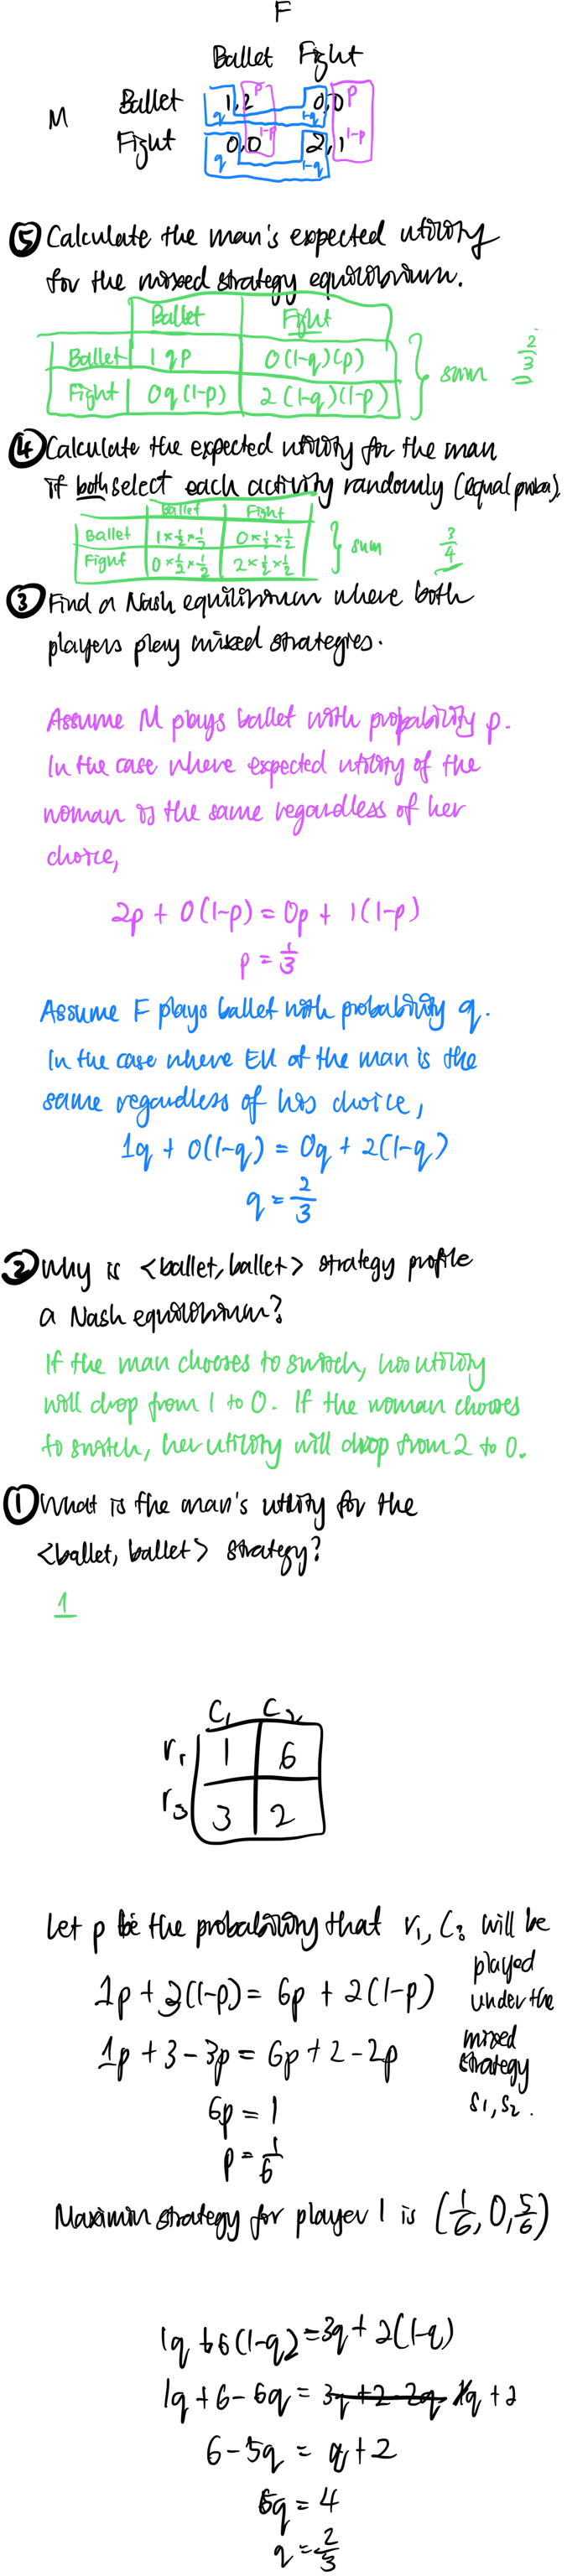 F
Ballet Fight
M Ballet 1,2 0,0
q p 1-q p
Fight 0,0 2,1
q 1-p 1-q 1-p
⑤ Calculate the man's expected utility
for the mixed strategy equilibrium.
Ballet Fight
Ballet 1 q p 0(1-q)(p)
Fight 0q(1-p) 2(1-q)(1-p)
} sum 2/3
④ Calculate the expected utility for the man
if both select each activity randomly (equal proba).
Ballet Fight
Ballet 1×½×½ 0×½×½
Fight 0×½×½ 2×½×½
} sum 3/4
③ Find a Nash equilibrium where both
players play mixed strategies.
Assume M plays ballet with probability p.
In the case where expected utility of the
woman is the same regardless of her
choice,
2p + 0(1-p) = 0p + 1(1-p)
p = 1/3
Assume F plays ballet with probability q.
In the case where EU of the man is the
same regardless of his choice,
1q + 0(1-q) = 0q + 2(1-q)
q = 2/3
② Why is <ballet, ballet> strategy profile
a Nash equilibrium?
If the man chooses to switch, his utility
will drop from 1 to 0. If the woman chooses
to switch, her utility will drop from 2 to 0.
① What is the man's utility for the
<ballet, ballet> strategy?
1
C₁ C₂
r₁ 1 6
r₃ 3 2
Let p be the probability that r₁, C₂ will be
played
under the
mixed
strategy
s₁, s₂.
1p + 3(1-p) = 6p + 2(1-p)
1p + 3 - 3p = 6p + 2 - 2p
6p = 1
p = 1/6
Maximin strategy for player 1 is (1/6, 0, 5/6)
1q + 6(1-q) = 3q + 2(1-q)
1q + 6 - 6q = 3q + 2 - 2q 1q + 2
6 - 5q = q + 2
6q = 4
q = 2/3